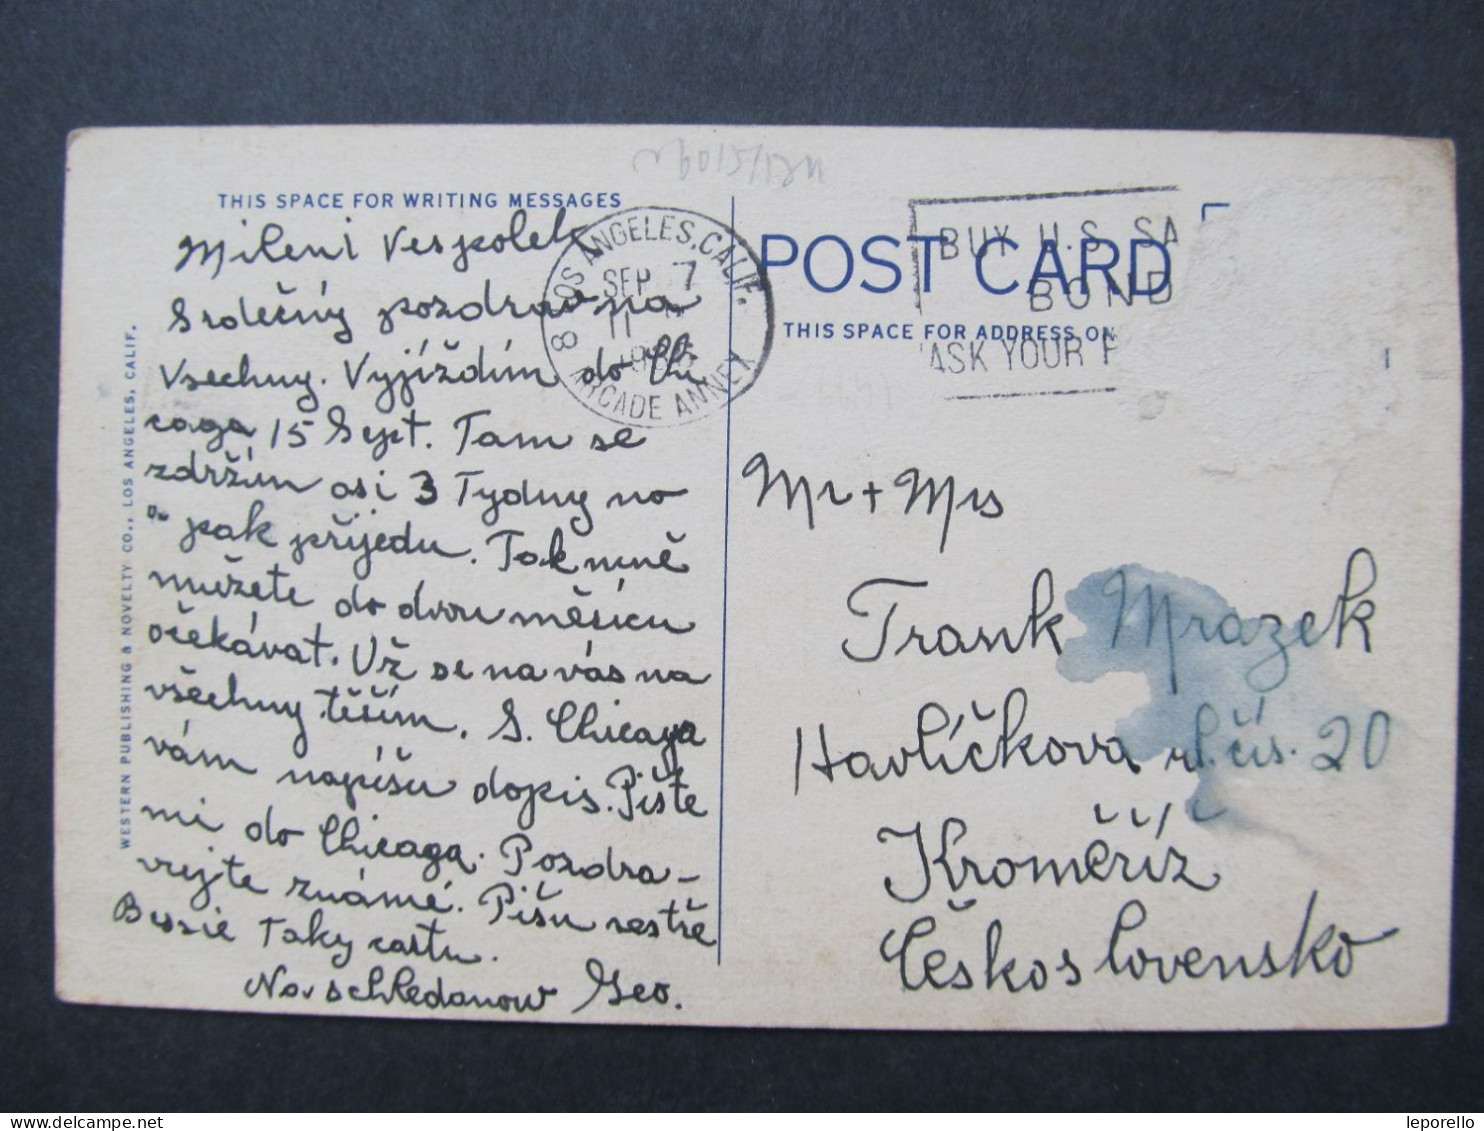 THIS SPACE FOR WRITING MESSAGES
Mileni Vespolek
Srdečný pozdrav na
Vsechny. Vyjíždím do Chi
caga 15 Sept. Tam se
zdržím asi 3 Tydny no
a pak přijedu. Tak mně
mužete do dvou měsícu
očekávat. Už se na vás na
všechny těším. S. Chicaga
vám napíšu dopis. Pište
mi do Chicaga. Pozdra-
vujte známé. Pišu sestře
Bessie Taky cartu.
Na schledanow Geo.
WESTERN PUBLISHING & NOVELTY CO., LOS ANGELES, CALIF.
LOS ANGELES, CALIF.
SEP 7
11
8 ARCADE ANNEX
BUY U.S. SA
BOND
ASK YOUR P
POST CARD
THIS SPACE FOR ADDRESS ON
Mr + Mrs
Frank Mrazek
Havlíčkova ul. čís. 20
Kroměříž
Československo
leporello
www.delcampe.net